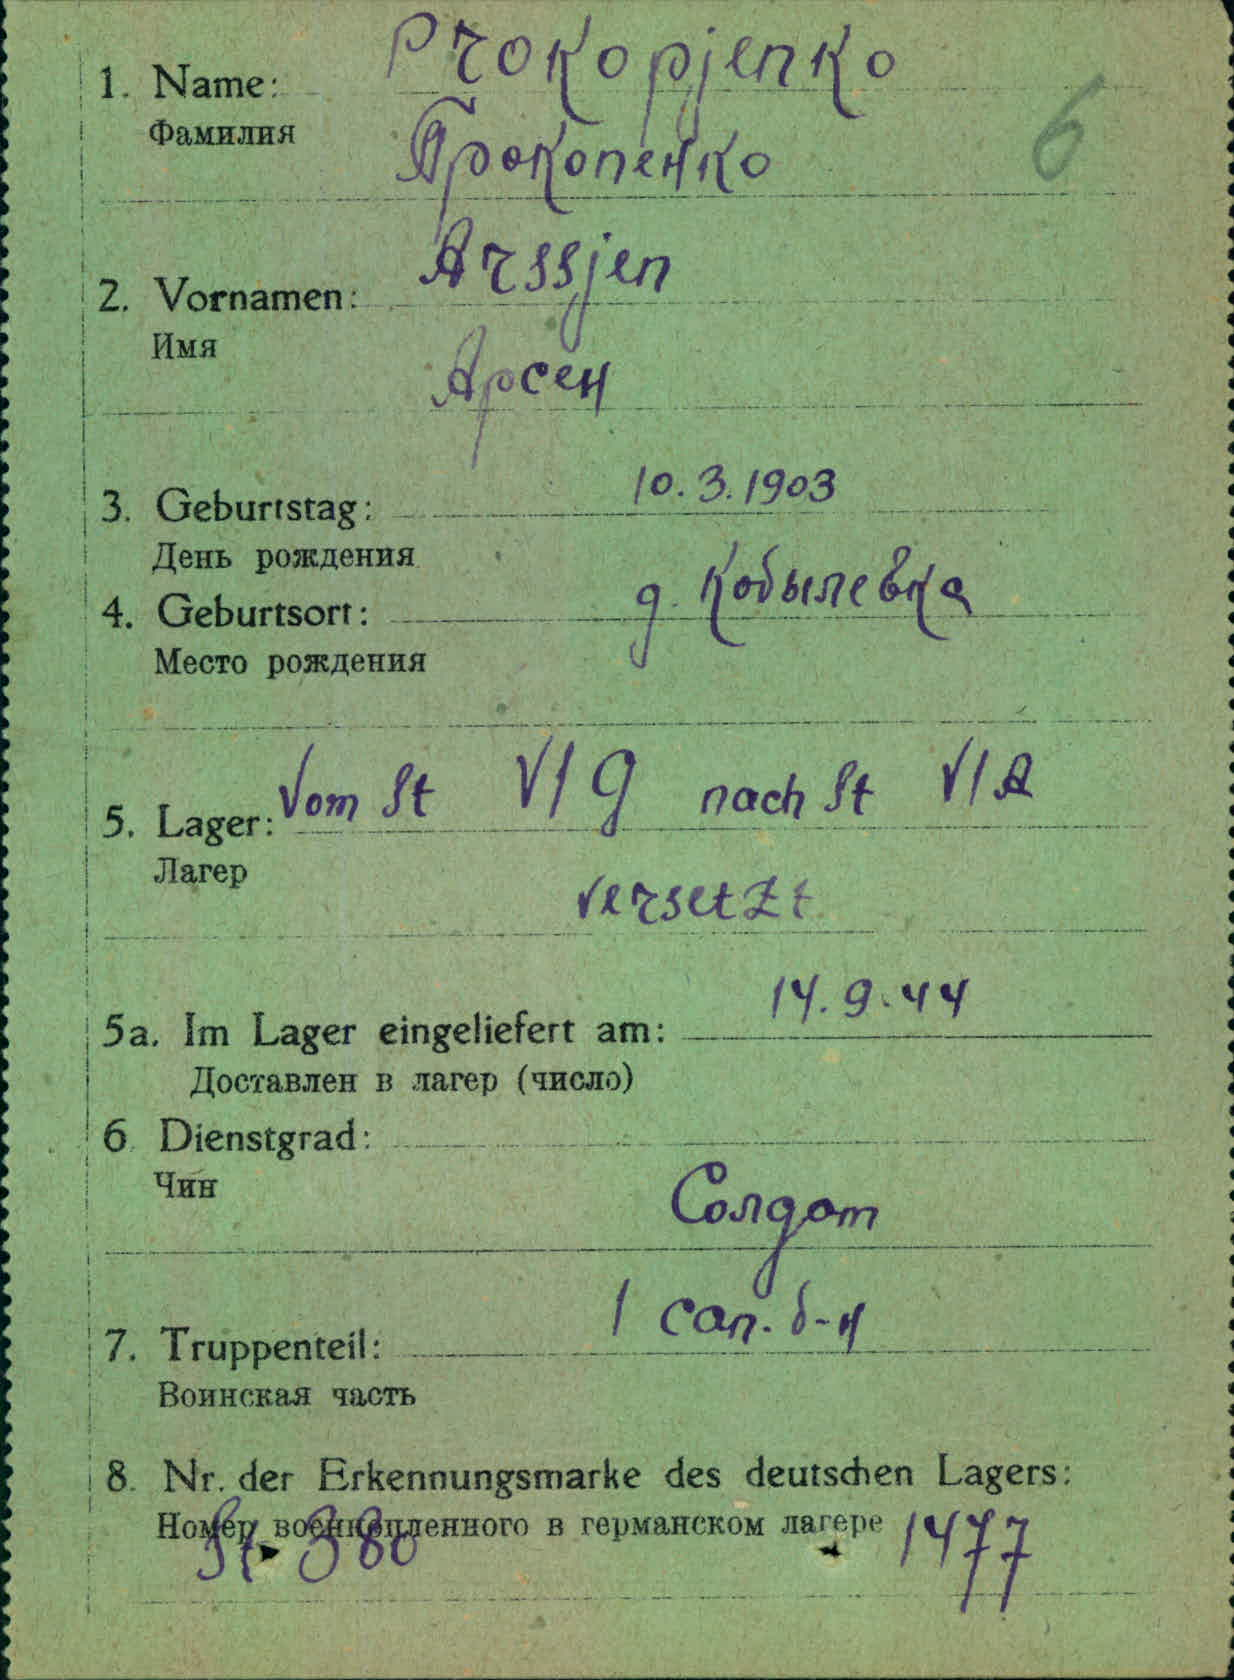 Prokopjenko
1. Name:
Фамилия
Прокопенко
6
Arssjen
2. Vornamen:
Имя
Арсен
3. Geburtstag: 10.3.1903
День рождения
4. Geburtsort: д. Кобылевка
Место рождения
5. Lager: Vom St VI G nach St VI A
Лагер
versetzt
5a. Im Lager eingeliefert am: 14.9.44
Доставлен в лагер (число)
6 Dienstgrad:
Чин
Солдат
7. Truppenteil: 1 сап. б-н
Воинская часть
8. Nr. der Erkennungsmarke des deutschen Lagers:
Номер военнопленного в германском лагере
St. 380 1477